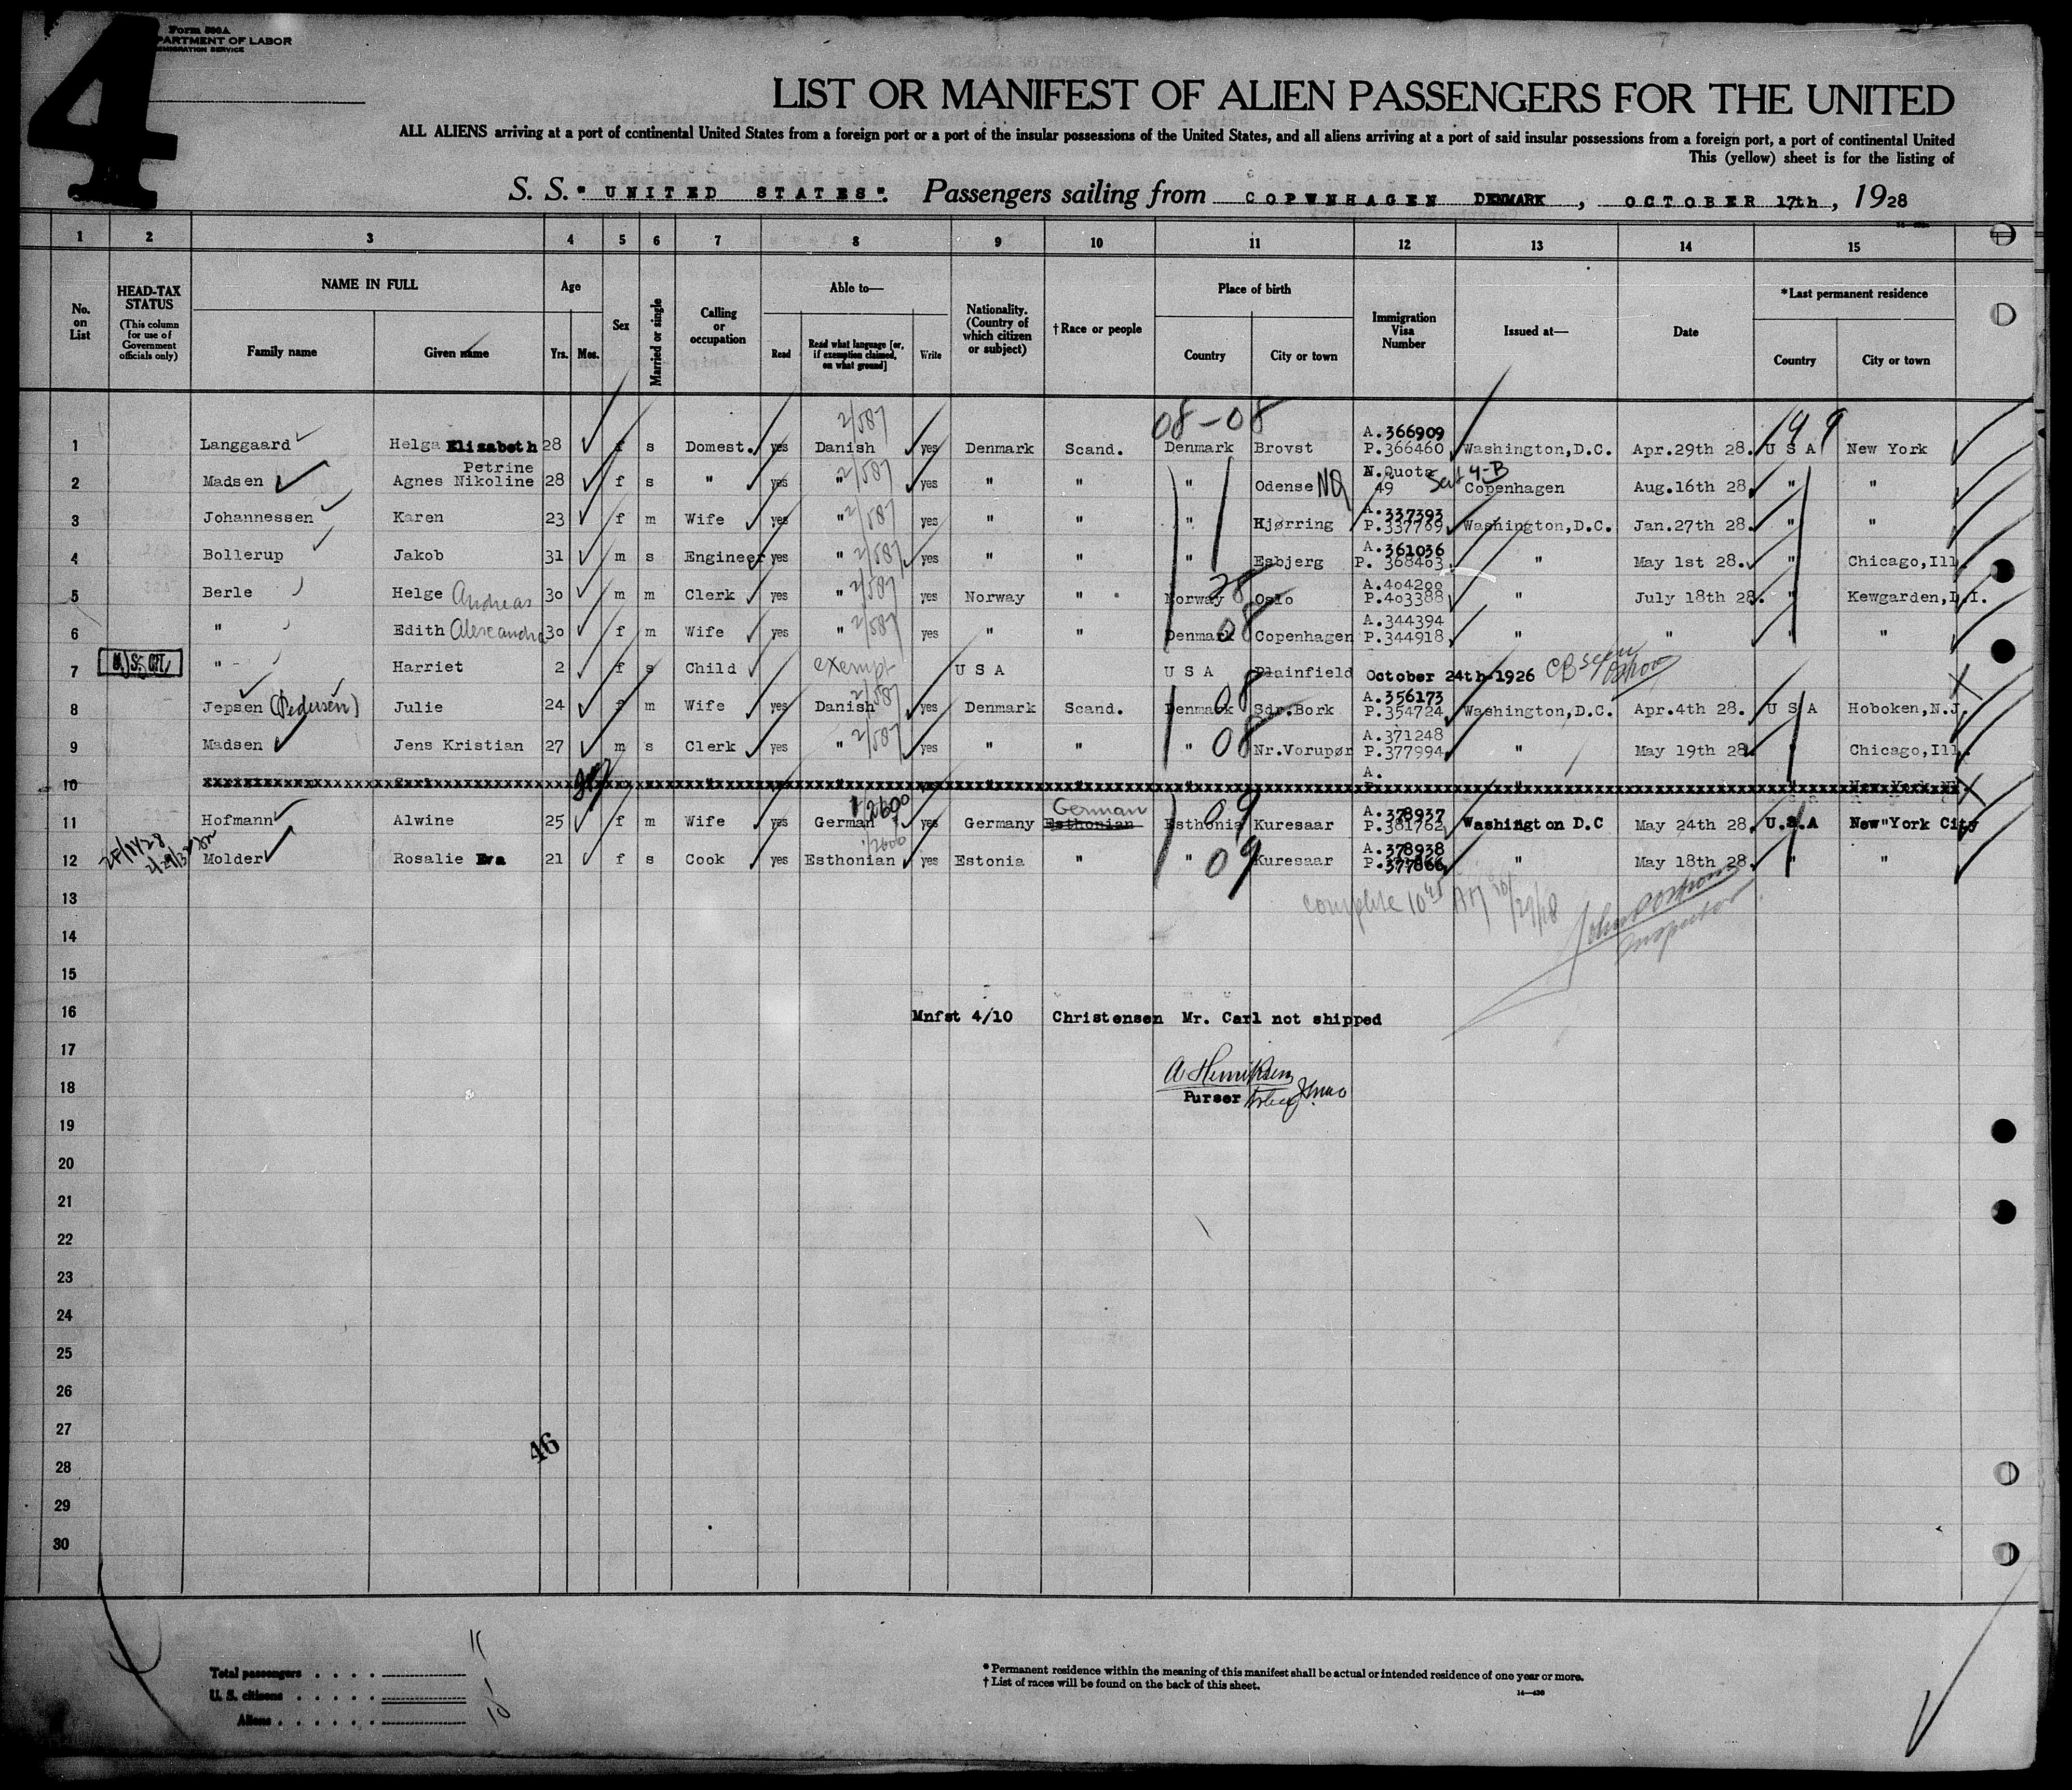 4
Form 500A
DEPARTMENT OF LABOR
IMMIGRATION SERVICE
LIST OR MANIFEST OF ALIEN PASSENGERS FOR THE UNITED
ALL ALIENS arriving at a port of continental United States from a foreign port or a port of the insular possessions of the United States, and all aliens arriving at a port of said insular possessions from a foreign port, a port of continental United
This (yellow) sheet is for the listing of
S. S. "UNITED STATES". Passengers sailing from COPWNHAGEN DENMARK, OCTOBER 17th, 1928
1 2 3 4 5 6 7 8 9 10 11 12 13 14 15
No. on List
HEAD-TAX STATUS (This column for use of Government officials only)
NAME IN FULL
Family name Given name
Age
Yrs. Mos.
Sex
Married or single
Calling or occupation
Able to—
Read Read what language [or, if exemption claimed, on what ground] Write
Nationality. (Country of which citizen or subject)
†Race or people
Place of birth
Country City or town
Immigration Visa Number
Issued at—
Date
*Last permanent residence
Country City or town
2/587 08-08 A.366909 199
1 Langgaard Helga Elizabeth 28 f s Domest. yes Danish yes Denmark Scand. Denmark Brovst P.366460 Washington,D.C. Apr.29th 28. U S A New York
Petrine 2/587 N.Quota 4-B
2 Madsen Agnes Nikoline 28 f s " yes " yes " " " Odense NQ 49 Copenhagen Aug.16th 28. " "
A.337393
3 Johannessen Karen 23 f m Wife yes " 2/587 yes " " " Hjørring P.337769 Washington,D.C. Jan.27th 28. " "
A.361036
4 Bollerup Jakob 31 m s Engineer yes " 2/587 yes " " " Esbjerg P. 368463. " May 1st 28. " Chicago,Ill.
A.404200
5 Berle Helge Andreas 30 m m Clerk yes " 2/587 yes Norway " Norway 28 Oslo P.403388 " July 18th 28. " Kewgarden,L.I.
A.344394
6 " Edith Alexandra 30 f m Wife yes " 2/587 yes " " Denmark 08 Copenhagen P.344918 " " " "
7 U.S. Cit. " Harriet 2 f s Child exempt U S A U S A Plainfield October 24th-1926 CB seen
2/587 A.356173
8 Jepsen (Pedersen) Julie 24 f m Wife yes Danish yes Denmark Scand. Denmark 08 Sdr.Bork P.354724 Washington,D.C. Apr.4th 28. U S A Hoboken,N.J.
A.371248
9 Madsen Jens Kristian 27 m s Clerk yes " 2/587 yes " " " 08 Nr.Vorupør P.377994 " May 19th 28. " Chicago,Ill.
A.
10 xxxxxxxxxxxxxxxxxxxxxxxx
1/2600 German A.378937
11 Hofmann Alwine 25 f m Wife yes German yes Germany Esthonian Esthonia 09 Kuresaar P.381762 Washington D.C May 24th 28. U.S.A New"York City
A.378938
12 Molder Rosalie Eva 21 f s Cook yes Esthonian yes Estonia " " 09 Kuresaar P.377866 " May 18th 28. " "
13 complete 10 45 AM 10/29/28
14 Inspector
15
16 Mnfst 4/10 Christensen Mr. Carl not shipped
17
A Henriksen
18 Purser
19
20
21
22
23
24
25
26
27
46
28
29
30
Total passengers . . . . 11
U. S. citizens . . . . . 1
Aliens . . . . . . 10
*Permanent residence within the meaning of this manifest shall be actual or intended residence of one year or more.
†List of races will be found on the back of this sheet.
14—430